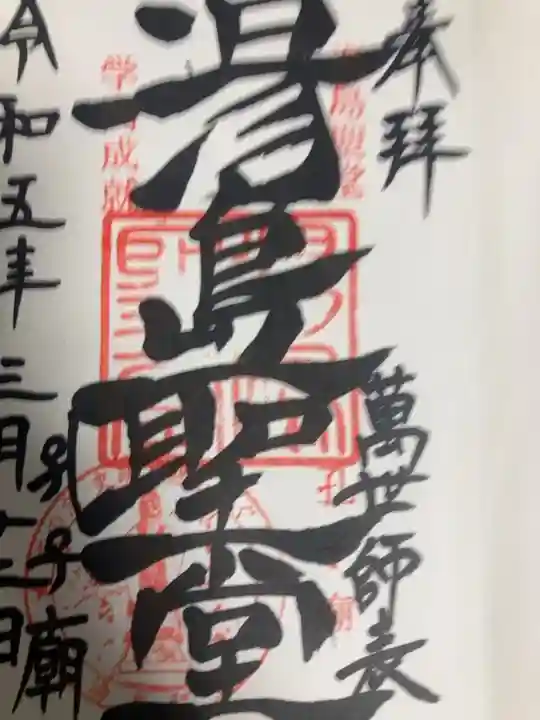 奉拝
萬世師表
湯島聖堂
孔子廟
令和五年三月十二日
学業成就